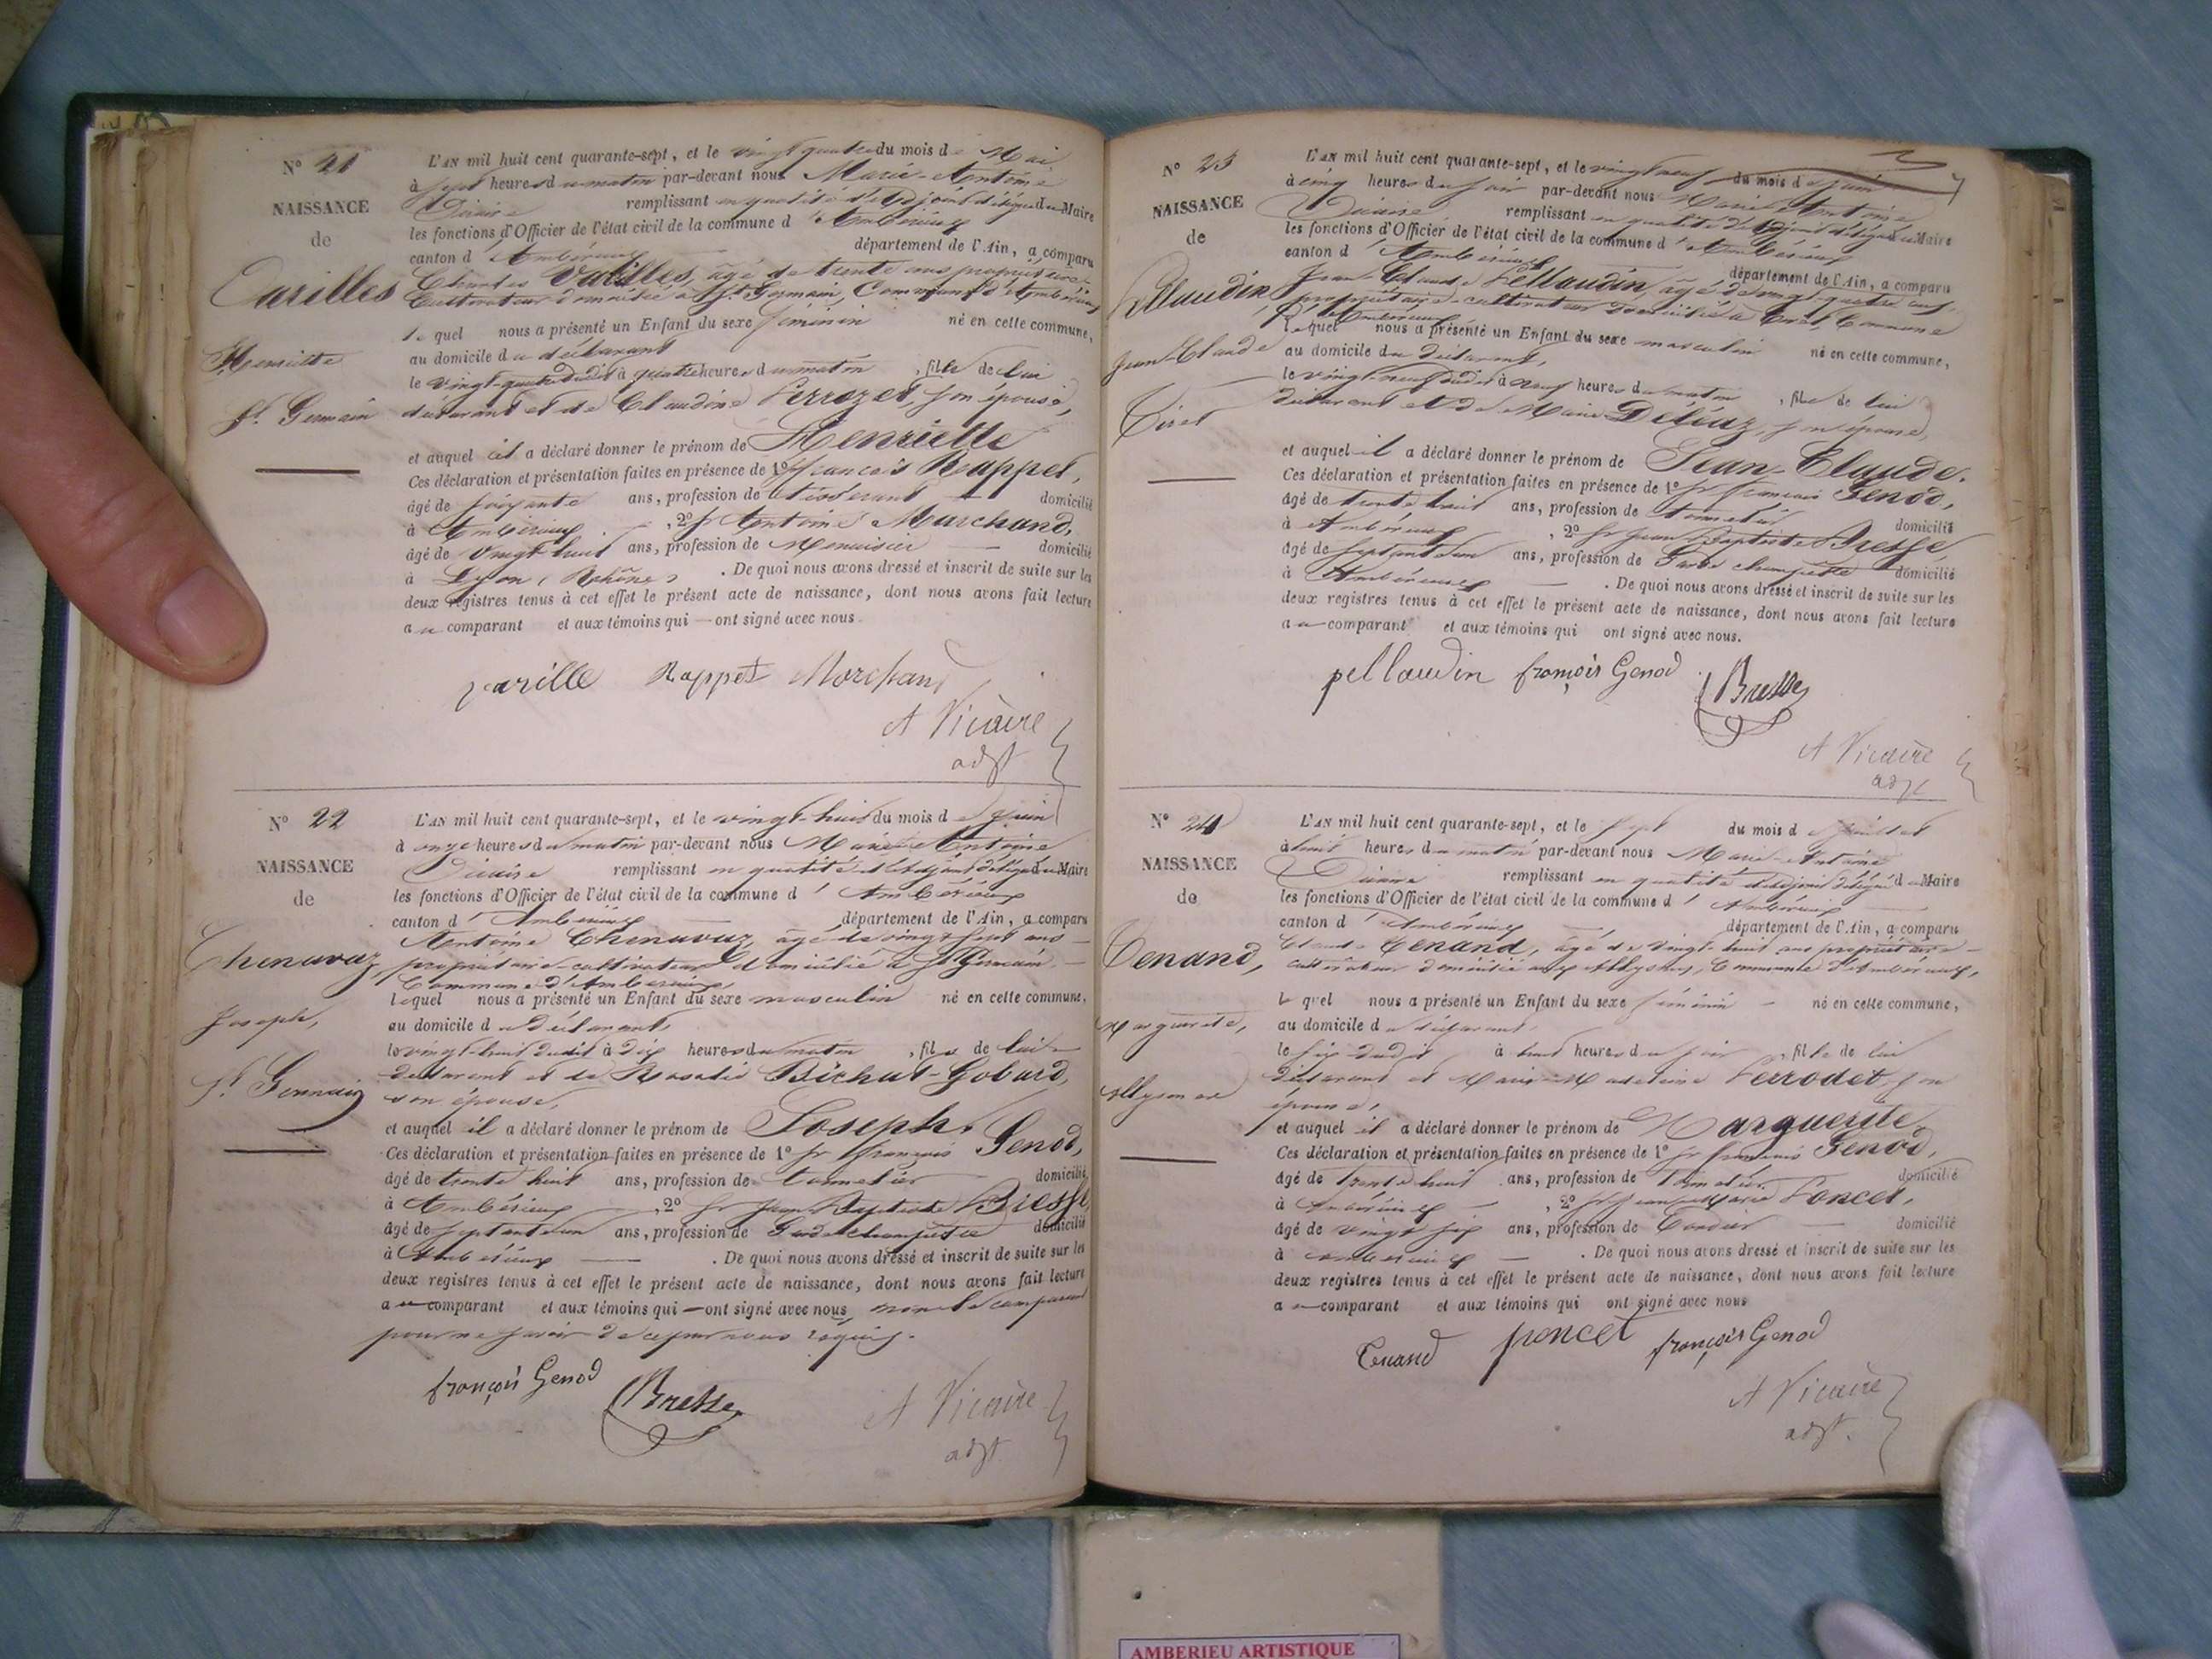 N° 21
NAISSANCE
de
Varilles
Henriette
St. Germain
L'AN mil huit cent quarante-sept, et le vingt quatre du mois de Mai
à sept heures du matin par-devant nous Marie-Antoine
Vicaire remplissant en qualité d'adjoint délégué du Maire
les fonctions d'Officier de l'état civil de la commune d'Ambérieux
canton d'Ambérieux département de l'Ain, a comparu
Charles Varilles, âgé de trente ans propriétaire
Cultivateur domicilié à St. Germain, Commune d'Ambérieux
lequel nous a présenté un Enfant du sexe féminin né en cette commune,
au domicile du déclarant
le vingt-quatre dudit à quatre heures du matin, fille de lui
déclarant et de Claudine Perrozet, son épouse,
et auquel il a déclaré donner le prénom de Henriette
Ces déclaration et présentation faites en présence de 1° françois Rappet,
âgé de soixante ans, profession de tisserant domicilié
à Ambérieux, 2° sr Antoine Marchand,
âgé de vingt huit ans, profession de Menuisier domicilié
à Lyon (Rhône). De quoi nous avons dressé et inscrit de suite sur les
deux registres tenus à cet effet le présent acte de naissance, dont nous avons fait lecture
au comparant et aux témoins qui ont signé avec nous.
varille Rappet Morchand
A Vicaire
adjt
N° 22
NAISSANCE
de
Chenavaz
Joseph,
St. Germain
L'AN mil huit cent quarante-sept, et le vingt-huit du mois de Juin
à onze heures du matin par-devant nous Marie-Antoine
Vicaire remplissant en qualité d'adjoint délégué du Maire
les fonctions d'Officier de l'état civil de la commune d'Ambérieux
canton d'Ambérieux département de l'Ain, a comparu
Antoine Chenavaz, âgé de vingt sept ans
propriétaire-cultivateur domicilié à St Germain
Commune d'Ambérieux,
lequel nous a présenté un Enfant du sexe masculin né en cette commune,
au domicile du déclarant,
le vingt-huit dudit à dix heures du matin, fils de lui
déclarant et de Rosalie Bichat-Gobard,
son épouse,
et auquel il a déclaré donner le prénom de Joseph.
Ces déclaration et présentation faites en présence de 1° sr françois Genod,
âgé de trente huit ans, profession de tonnelier domicilié
à Ambérieux, 2° sr Jean Baptiste Bresse
âgé de septante un ans, profession de Garde champêtre domicilié
à Ambérieux. De quoi nous avons dressé et inscrit de suite sur les
deux registres tenus à cet effet le présent acte de naissance, dont nous avons fait lecture
au comparant et aux témoins qui ont signé avec nous, non le comparant
pour ne savoir de ce par nous requis.
françois Genod Bresse
A Vicaire
adjt
N° 23
NAISSANCE
de
Pellaudin
Jean-Claude
Tiret
L'AN mil huit cent quarante-sept, et le vingt neuf du mois de Juin
à cinq heures du soir par-devant nous Marie Antoine
Vicaire remplissant en qualité d'adjoint délégué du Maire
les fonctions d'Officier de l'état civil de la commune d'Ambérieux
canton d'Ambérieux département de l'Ain, a comparu
Jean-Claude Pellaudin, âgé de vingt quatre ans,
propriétaire-cultivateur domicilié à Tiret, Commune
d'Ambérieux
lequel nous a présenté un Enfant du sexe masculin né en cette commune,
au domicile du déclarant,
le vingt-neuf dudit à neuf heures du matin, fils de lui
déclarant et de Marie Deléaz, son épouse,
et auquel il a déclaré donner le prénom de Jean-Claude.
Ces déclaration et présentation faites en présence de 1° sr françois Genod,
âgé de trente huit ans, profession de tonnelier domicilié
à Ambérieux, 2° sr Jean Baptiste Bresse
âgé de septante un ans, profession de Garde champêtre domicilié
à Ambérieux. De quoi nous avons dressé et inscrit de suite sur les
deux registres tenus à cet effet le présent acte de naissance, dont nous avons fait lecture
au comparant et aux témoins qui ont signé avec nous.
pellaudin françois Genod Bresse
A Vicaire
adjt
N° 24
NAISSANCE
de
Tenand,
Marguerite,
Allymes
L'AN mil huit cent quarante-sept, et le sept du mois de Juillet
à huit heures du matin par-devant nous Marie-Antoine
Vicaire remplissant en qualité d'adjoint délégué du Maire
les fonctions d'Officier de l'état civil de la commune d'Ambérieux
canton d'Ambérieux département de l'Ain, a comparu
Claude Tenand, âgé de vingt-huit ans propriétaire
cultivateur domicilié aux Allymes, Commune d'Ambérieux,
lequel nous a présenté un Enfant du sexe féminin né en cette commune,
au domicile du déclarant,
le six dudit à huit heures du soir, fille de lui
déclarant et Marie-Madeleine Perrodet, son
épouse,
et auquel il a déclaré donner le prénom de Marguerite.
Ces déclaration et présentation faites en présence de 1° sr françois Genod,
âgé de trente huit ans, profession de tonnelier domicilié
à Ambérieux, 2° sr Jean Marie Poncet,
âgé de vingt six ans, profession de Cordier domicilié
à Ambérieux. De quoi nous avons dressé et inscrit de suite sur les
deux registres tenus à cet effet le présent acte de naissance, dont nous avons fait lecture
au comparant et aux témoins qui ont signé avec nous
Tenand poncet françois Genod
A Vicaire
adjt.
AMBERIEU ARTISTIQUE